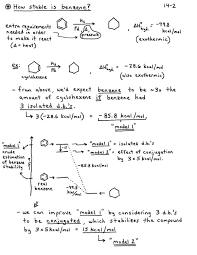 ⊛ How stable is benzene? 14-2
extra requirements
needed in order
to make it react
(Δ = heat)
H₂
Pt
Δ pressure
ΔH°hyd = -49.8 kcal/mol
(exothermic)
EX:
cyclohexene
H₂
Pt
ΔH°hyd = -28.6 kcal/mol
(also exothermic)
- from above, we'd expect benzene to be ~3x the
amount of cyclohexene if benzene had
3 isolated d.b.'s.
↳ 3(-28.6 kcal/mol) = -85.8 kcal/mol
"model 1"
"model 1"
crude
estimation
of benzene
stability
"model 1" = isolated d.b.'s
"model 2" = effect of conjugation
by 3×5 kcal/mol
-85.8 kcal/mol
real
benzene
-49.8
kcal/mol
- we can improve "model 1" by considering 3 d.b.'s
to be conjugated which stabilizes the compound
by 3×5 kcal/mol = 15 kcal/mol
↳ "model 2"